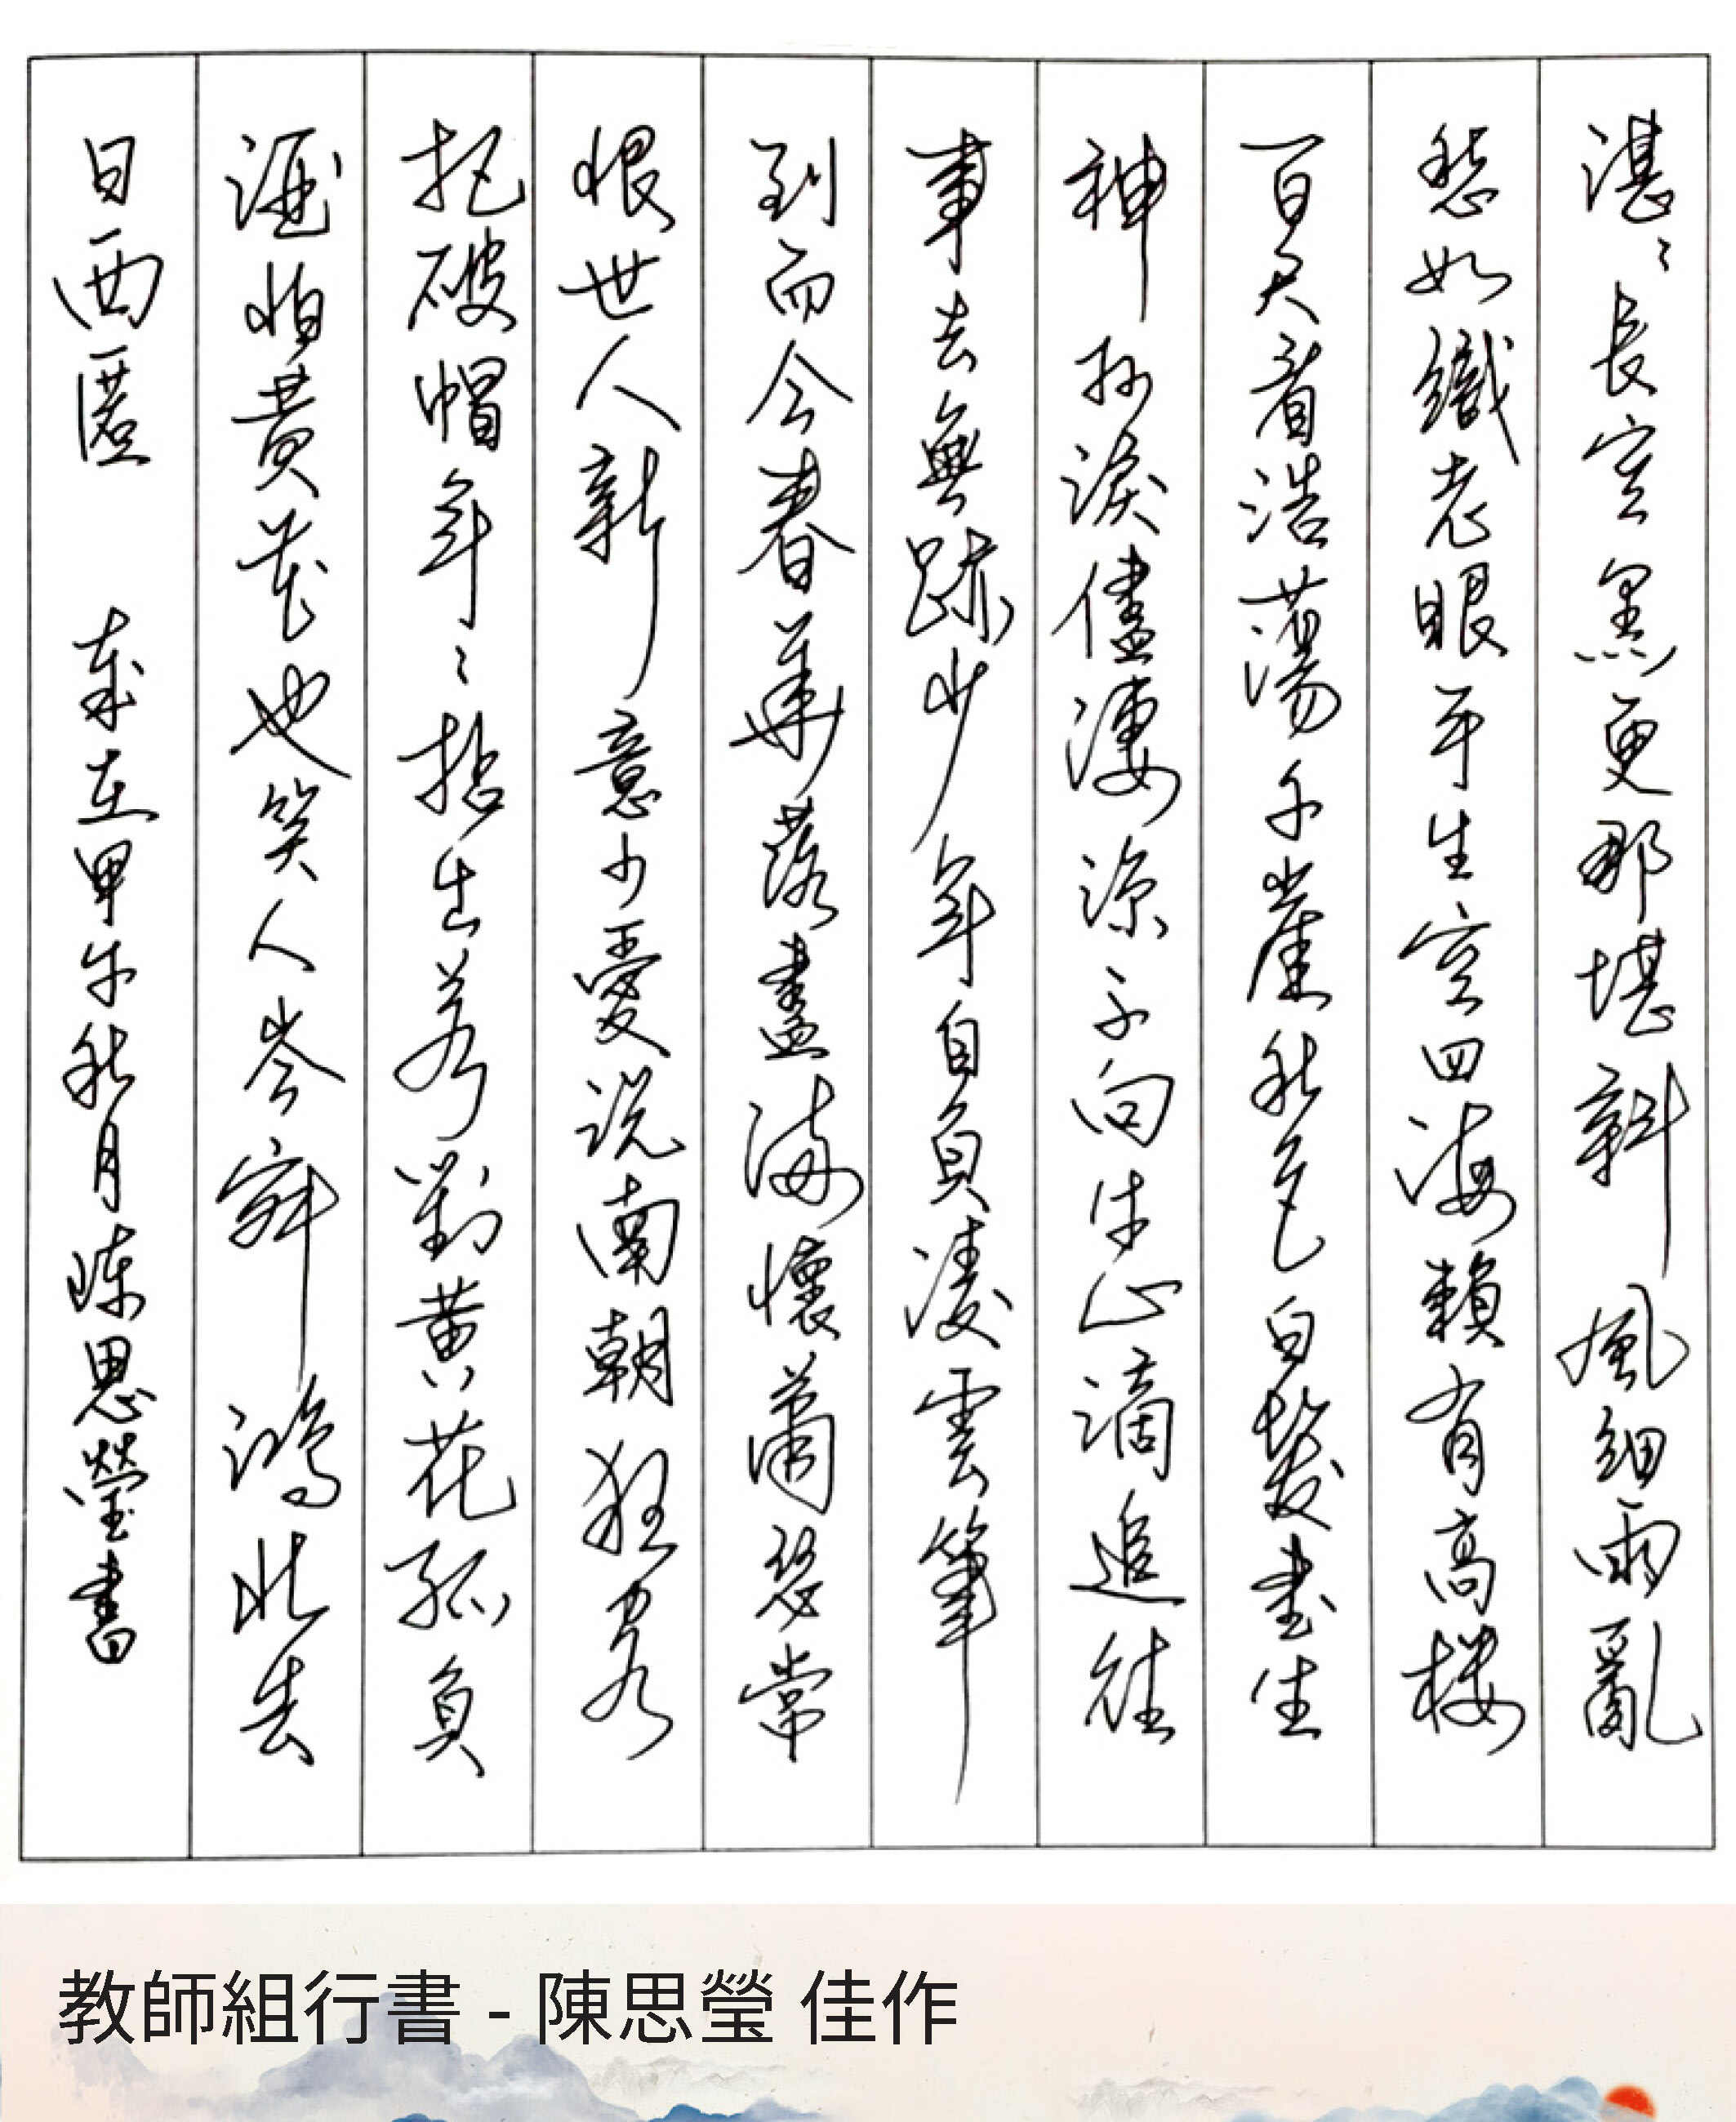 湛々長空黑更那堪斜風細雨亂
愁如織老眼平生空四海賴有高楼
百尺看浩蕩千崖秋色白髮書生
神州淚儘淒涼不向牛山滴追往
事去無跡少年自負凌雲筆
到而今春華落盡滿懷蕭瑟常
恨世人新意少愛說南朝狂客
把破帽年々拈出若對黃花孤負
酒怕黃花也笑人岑寂鴻北去
日西匿 歲在甲午秋月陳思瑩書
教師組行書 - 陳思瑩 佳作